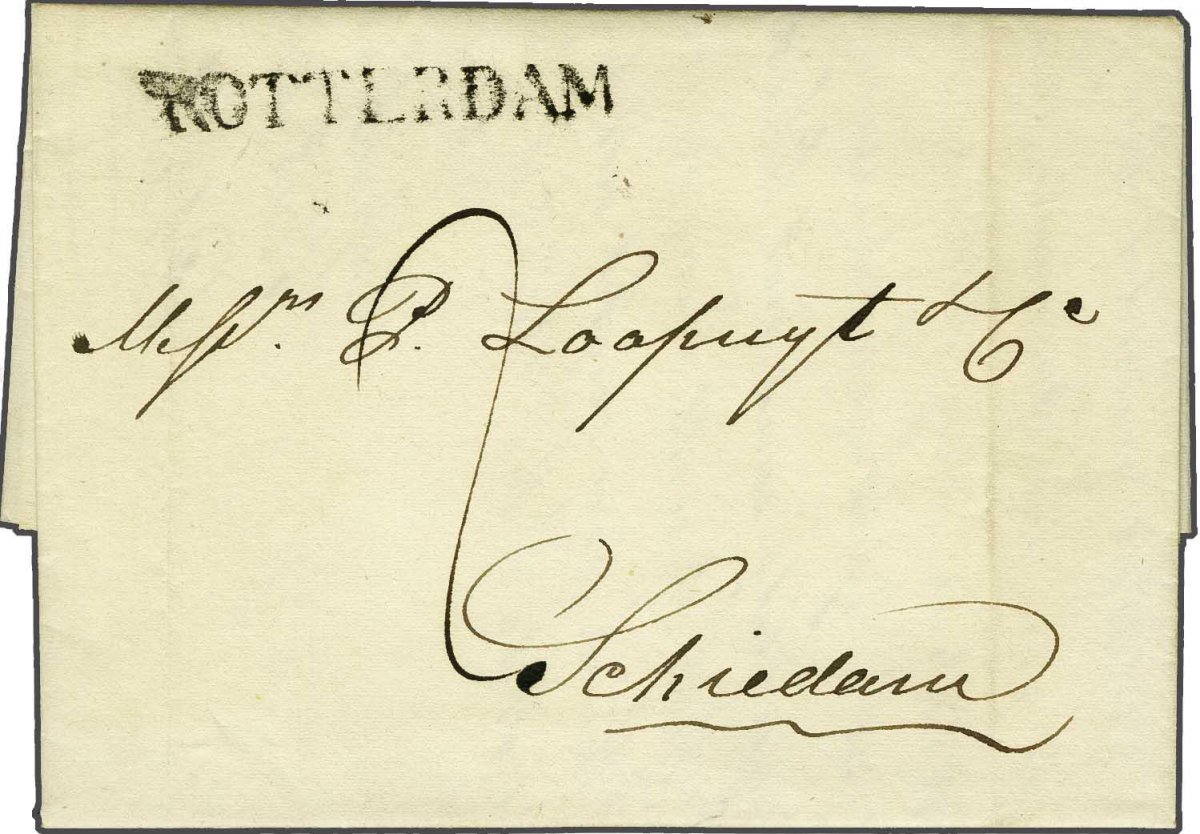 ROTTERDAM
Messrn. P. Loopuyt & Ce
Schiedam